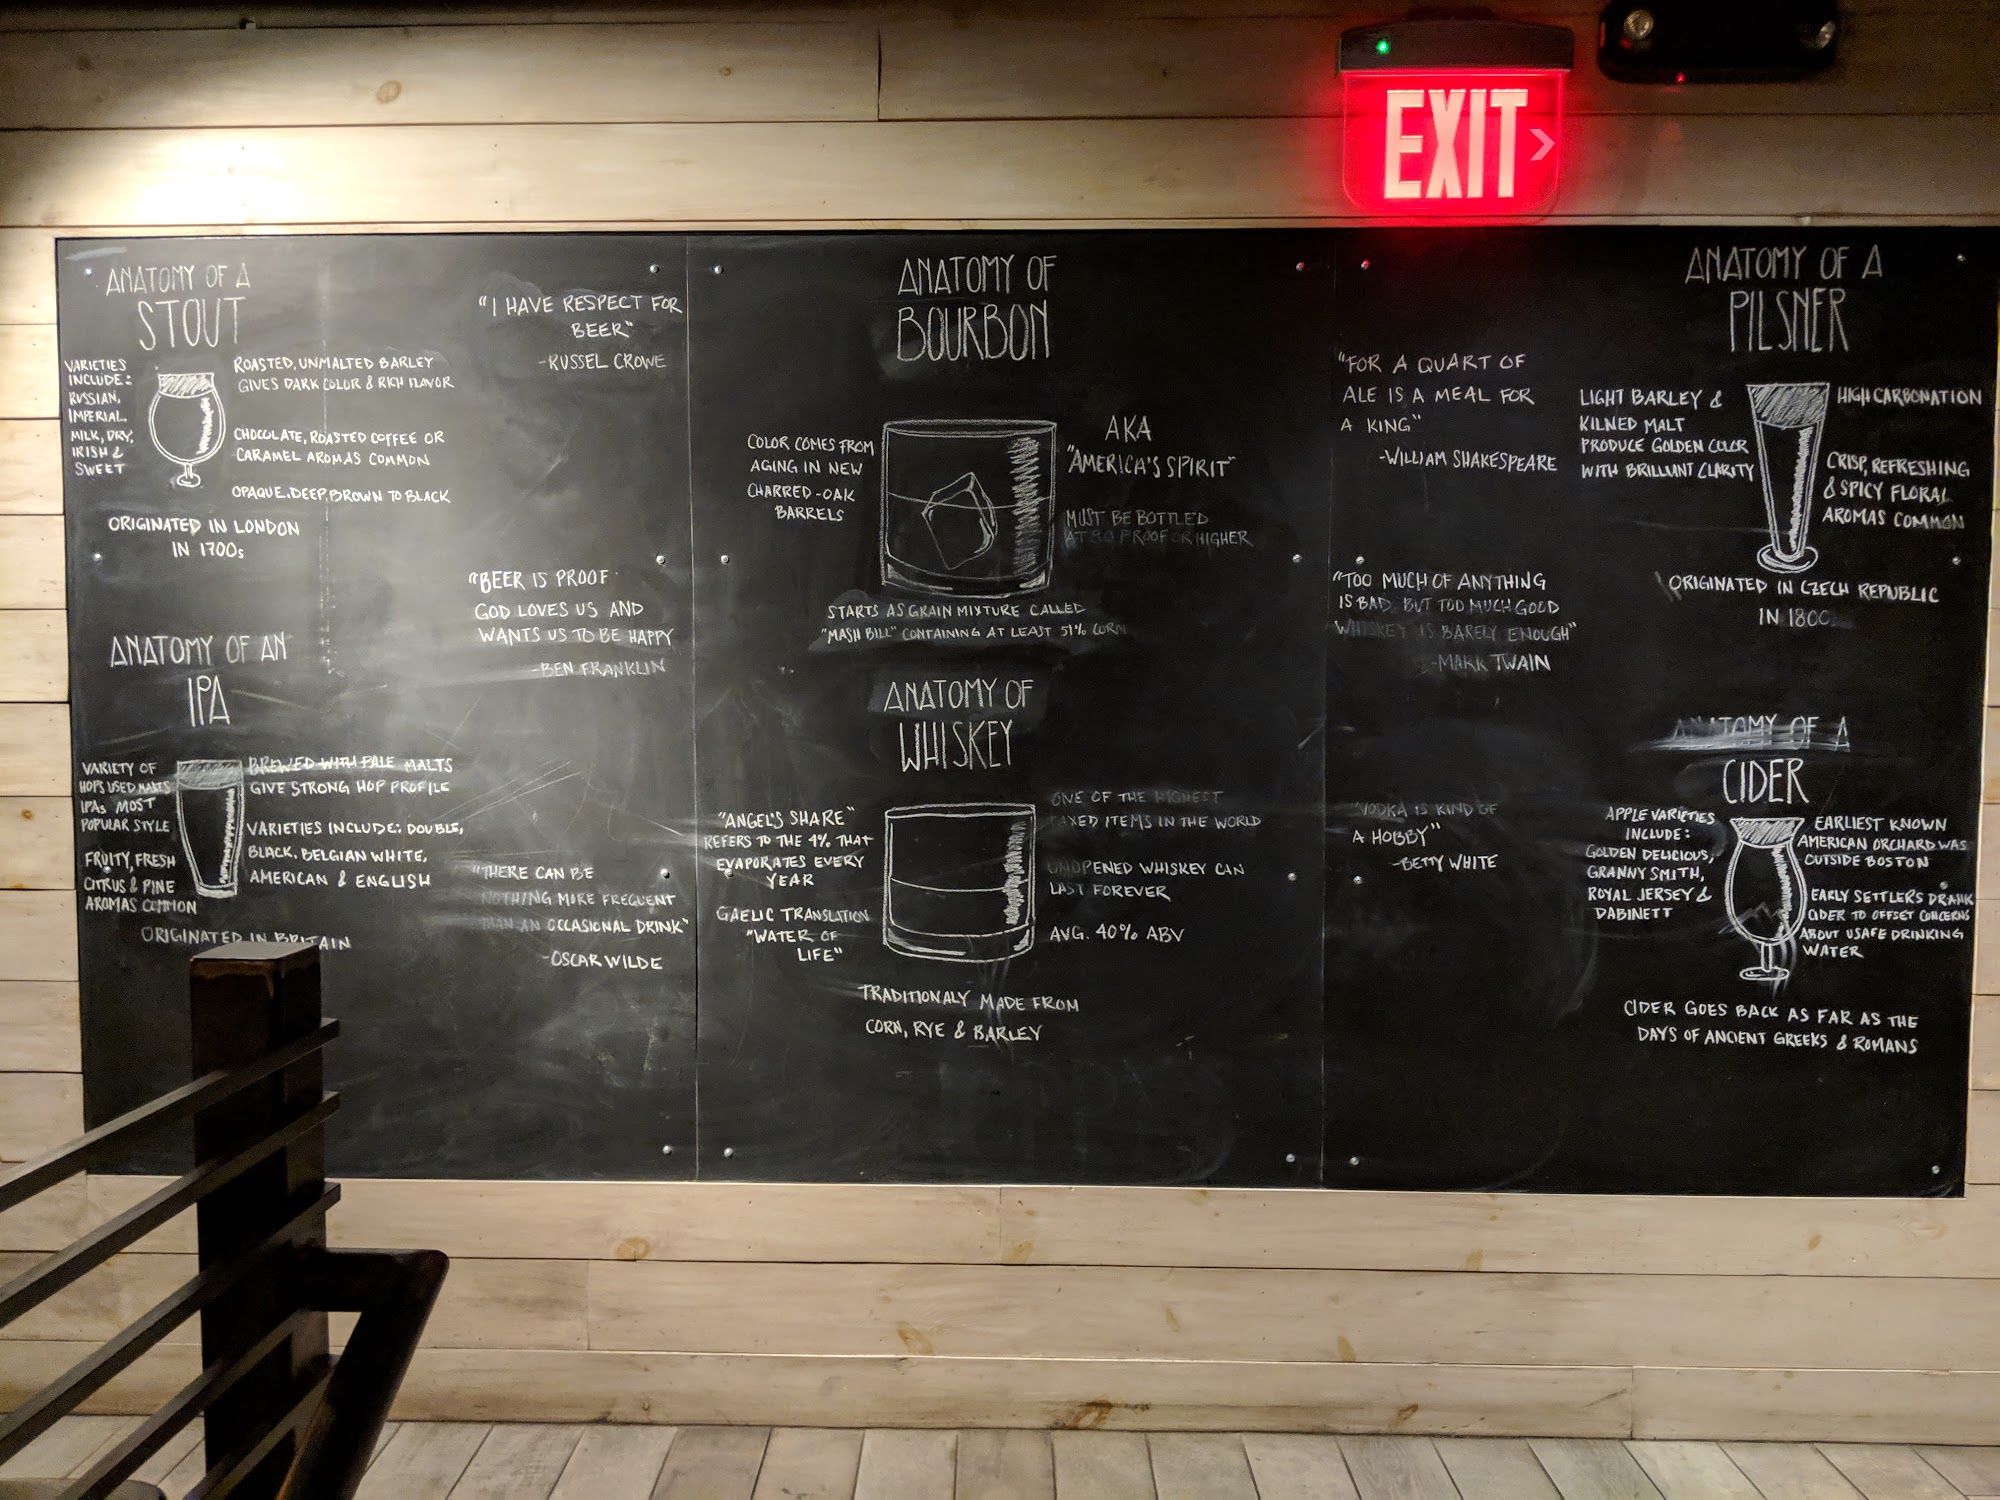 EXIT
ANATOMY OF A
STOUT
VARIETIES
INCLUDE:
RUSSIAN,
IMPERIAL.
MILK, DRY,
IRISH &
SWEET
ROASTED, UNMALTED BARLEY
GIVES DARK COLOR & RICH FLAVOR
CHOCOLATE, ROASTED COFFEE OR
CARAMEL AROMAS COMMON
OPAQUE. DEEP, BROWN TO BLACK
ORIGINATED IN LONDON
IN 1700s
ANATOMY OF AN
IPA
VARIETY OF
HOPS USED MAKES
IPAs MOST
POPULAR STYLE
FRUITY, FRESH
CITRUS & PINE
AROMAS COMMON
BREWED WITH PALE MALTS
GIVE STRONG HOP PROFILE
VARIETIES INCLUDE: DOUBLE,
BLACK, BELGIAN WHITE,
AMERICAN & ENGLISH
ORIGINATED IN BRITAIN
"I HAVE RESPECT FOR
BEER"
-RUSSEL CROWE
"BEER IS PROOF
GOD LOVES US AND
WANTS US TO BE HAPPY
-BEN FRANKLIN
"THERE CAN BE
NOTHING MORE FREQUENT
THAN AN OCCASIONAL DRINK"
-OSCAR WILDE
ANATOMY OF
BOURBON
COLOR COMES FROM
AGING IN NEW
CHARRED-OAK
BARRELS
AKA
"AMERICA'S SPIRIT"
MUST BE BOTTLED
AT 80 PROOF OR HIGHER
STARTS AS GRAIN MIXTURE CALLED
"MASH BILL" CONTAINING AT LEAST 51% CORN
ANATOMY OF
WHISKEY
"ANGEL'S SHARE"
REFERS TO THE 4% THAT
EVAPORATES EVERY
YEAR
GAELIC TRANSLATION
"WATER OF
LIFE"
ONE OF THE HIGHEST
TAXED ITEMS IN THE WORLD
UNOPENED WHISKEY CAN
LAST FOREVER
AVG. 40% ABV
TRADITIONALY MADE FROM
CORN, RYE & BARLEY
"FOR A QUART OF
ALE IS A MEAL FOR
A KING"
-WILLIAM SHAKESPEARE
"TOO MUCH OF ANYTHING
IS BAD, BUT TOO MUCH GOOD
WHISKEY IS BARELY ENOUGH"
-MARK TWAIN
"VODKA IS KIND OF
A HOBBY"
-BETTY WHITE
ANATOMY OF A
PILSNER
LIGHT BARLEY &
KILNED MALT
PRODUCE GOLDEN COLOR
WITH BRILLIANT CLARITY
HIGH CARBONATION
CRISP, REFRESHING
& SPICY FLORAL
AROMAS COMMON
ORIGINATED IN CZECH REPUBLIC
IN 1800
ANATOMY OF A
CIDER
APPLE VARIETIES
INCLUDE:
GOLDEN DELICIOUS,
GRANNY SMITH,
ROYAL JERSEY &
DABINETT
EARLIEST KNOWN
AMERICAN ORCHARD WAS
OUTSIDE BOSTON
EARLY SETTLERS DRANK
CIDER TO OFFSET CONCERNS
ABOUT USAFE DRINKING
WATER
CIDER GOES BACK AS FAR AS THE
DAYS OF ANCIENT GREEKS & ROMANS